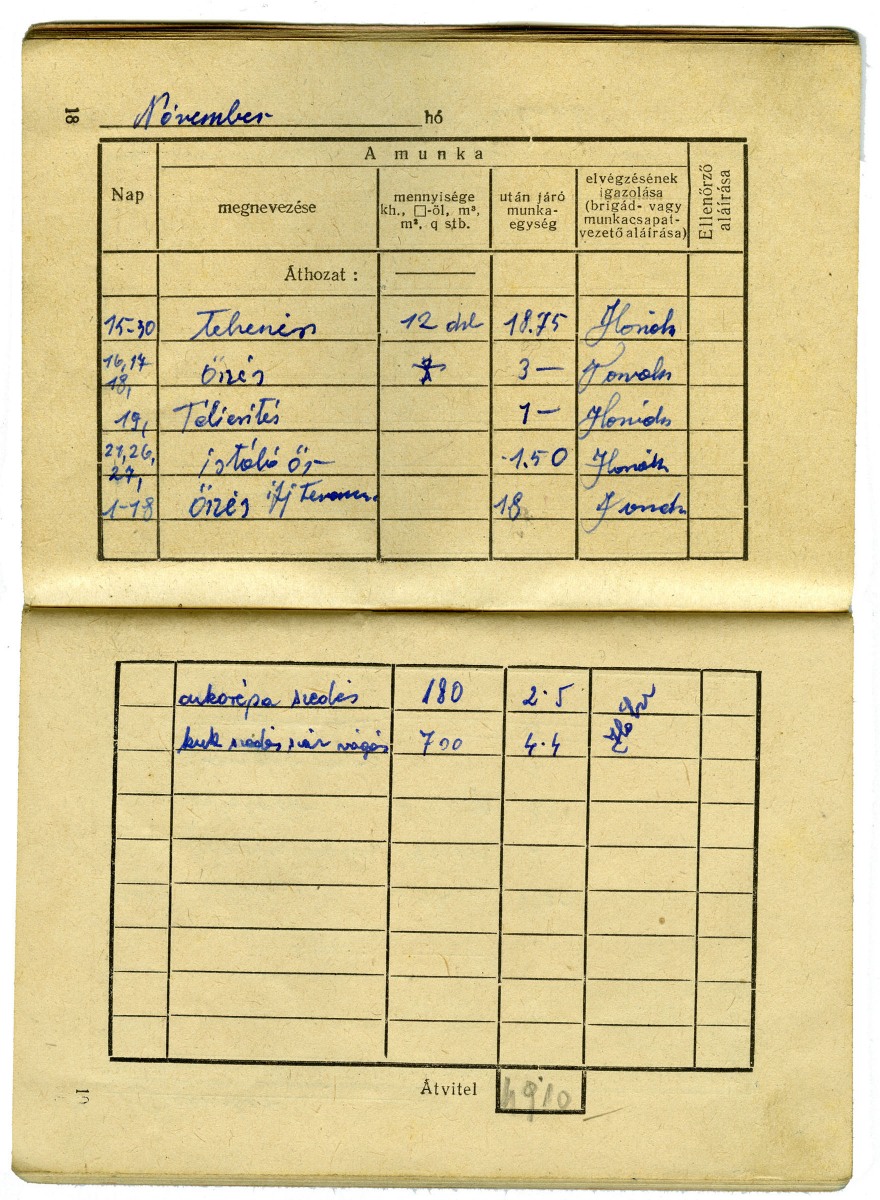 18
Nóvember hó
A munka
Nap
megnevezése
mennyisége
kh., □-öl, m³,
m², q stb.
után járó
munka-
egység
elvégzésének
igazolása
(brigád- vagy
munkacsapat-
vezető aláírása)
Ellenőrző
aláírása
Áthozat :
15-30 Tehenész 12 drb 18.75
16,17
18, őrzés 3—
19, 1—
21,26,
27, istálló őr- 1.50
1-18 Őrzés ifj 18
cukorépa szedés 180 2.5
kuk szedés szár vágás 700 4.4
Átvitel 49.10
19